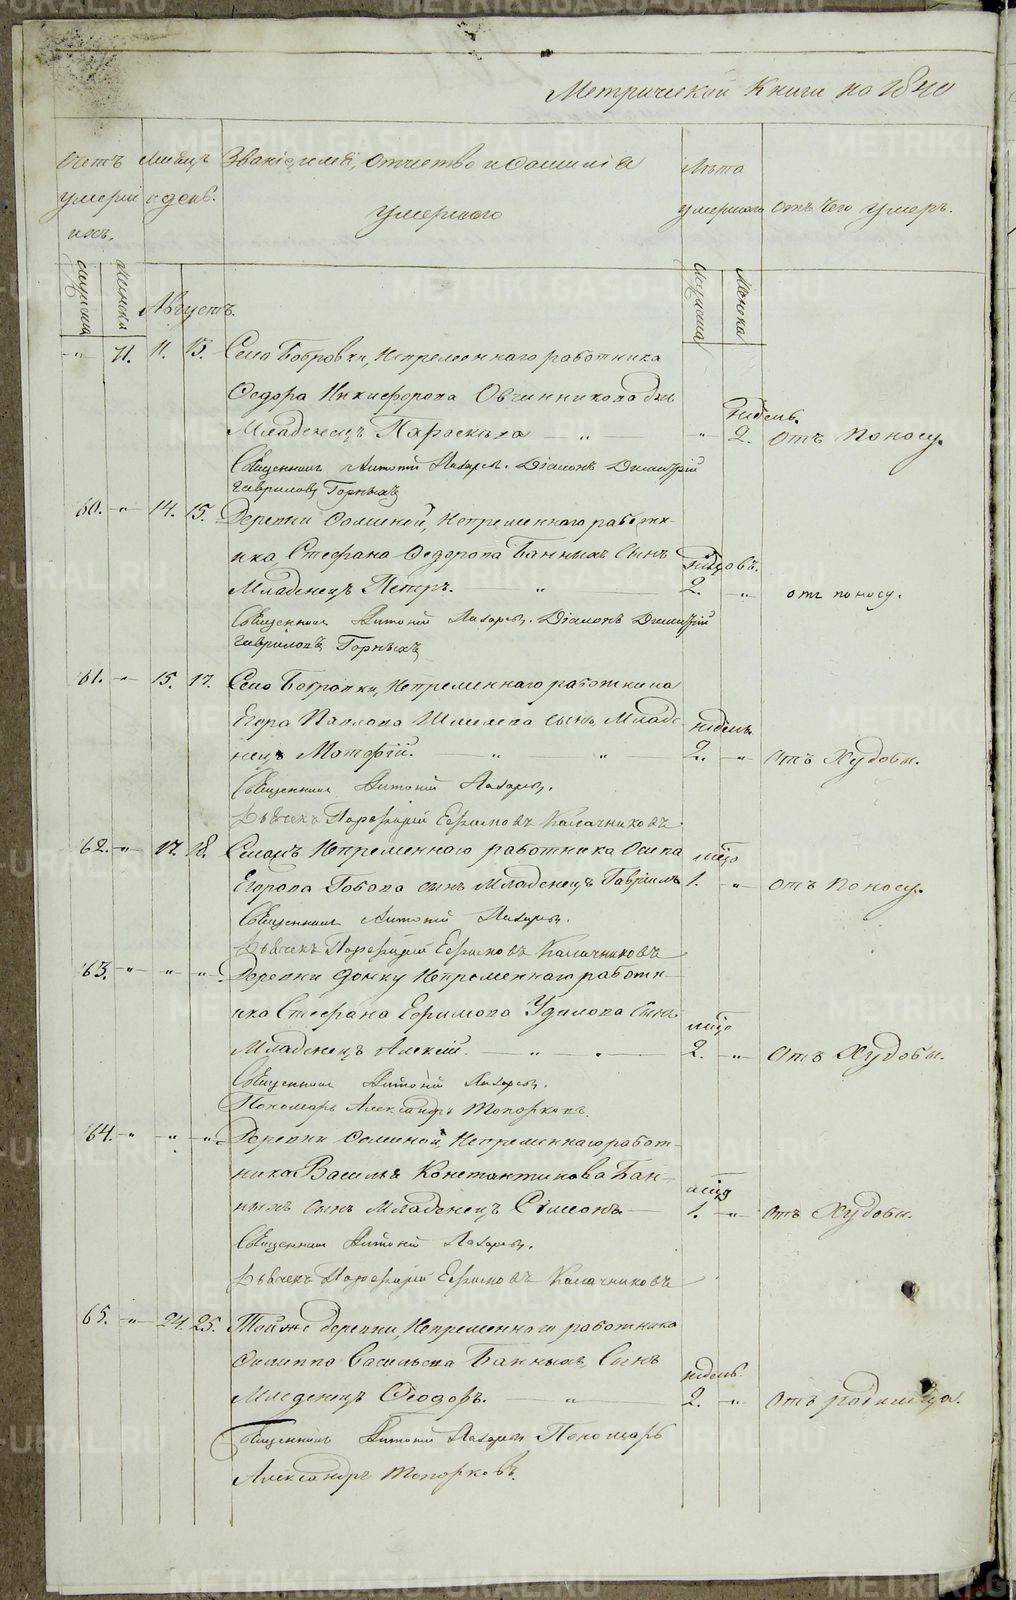 Метрической Книги на 1840
Счетъ умерш ихъ.
Мѣсяцъ и день.
Званіе, имя, отчество и фамилія умершаго
Лѣта умершаго
отъ чего умеръ.
Мужска
Женска
Августъ.
Мужска
Женска
" 71. 11. 13. Села Бобровки, Непременнаго работника
Федора Никифорова Овчинникова дочь
недель.
Младенецъ Параскева — " — " 2. отъ поносу.
Священникъ Антоній Лазаревъ. Діаконъ Димитрій
Гавриловъ Горныхъ
60. " 14. 15. Деревни Фоминой, Непременнаго работни-
ка Стефана Федорова Банныхъ Сынъ
Младенецъ Петръ. — " — 2. " отъ поносу.
Священникъ Антоній Лазаревъ. Діаконъ Димитрій
Гавриловъ Горныхъ
61. " 15. 17. Села Бобровки, Непременнаго работника
Егора Павлова Шмелева сынъ Младе
недель
нецъ — " — " — 2. " отъ Худобы.
Священникъ Антоній Лазаревъ.
Дьячекъ Порфирій Ефимовъ Калачниковъ
62. " 17. 18. Непременнаго работника Осипа
Егорова сынъ Младенецъ Гавріилъ 1. " отъ поносу.
Священникъ Антоній Лазаревъ.
Дьячекъ Порфирій Ефимовъ Калачниковъ
63. " " " Деревни Непременнаго работни
ка Стефана Ефимова Удилова Сынъ
Младенецъ Алексій. — " — " — 2. " отъ Худобы.
Священникъ Антоній Лазаревъ.
Пономарь Александръ Топорковъ.
64. " " " Деревни Фоминой, Непременнаго работ-
ника Василья Константинова Бан-
ныхъ сынъ Младенецъ Сѵмеонъ — 1. " отъ Худобы.
Священникъ Антоній Лазаревъ.
Дьячекъ Порфирій Ефимовъ Калачниковъ
65. " 24. 25. Той же деревни, Непременнаго работника
Филиппа Васильева Банныхъ Сынъ
недель.
Младенецъ Феодоръ. — " — 2. " отъ родимца.
Священникъ Антоній Лазаревъ Пономарь
Александръ Топорковъ.
METRIKI.GASO-URAL.RU